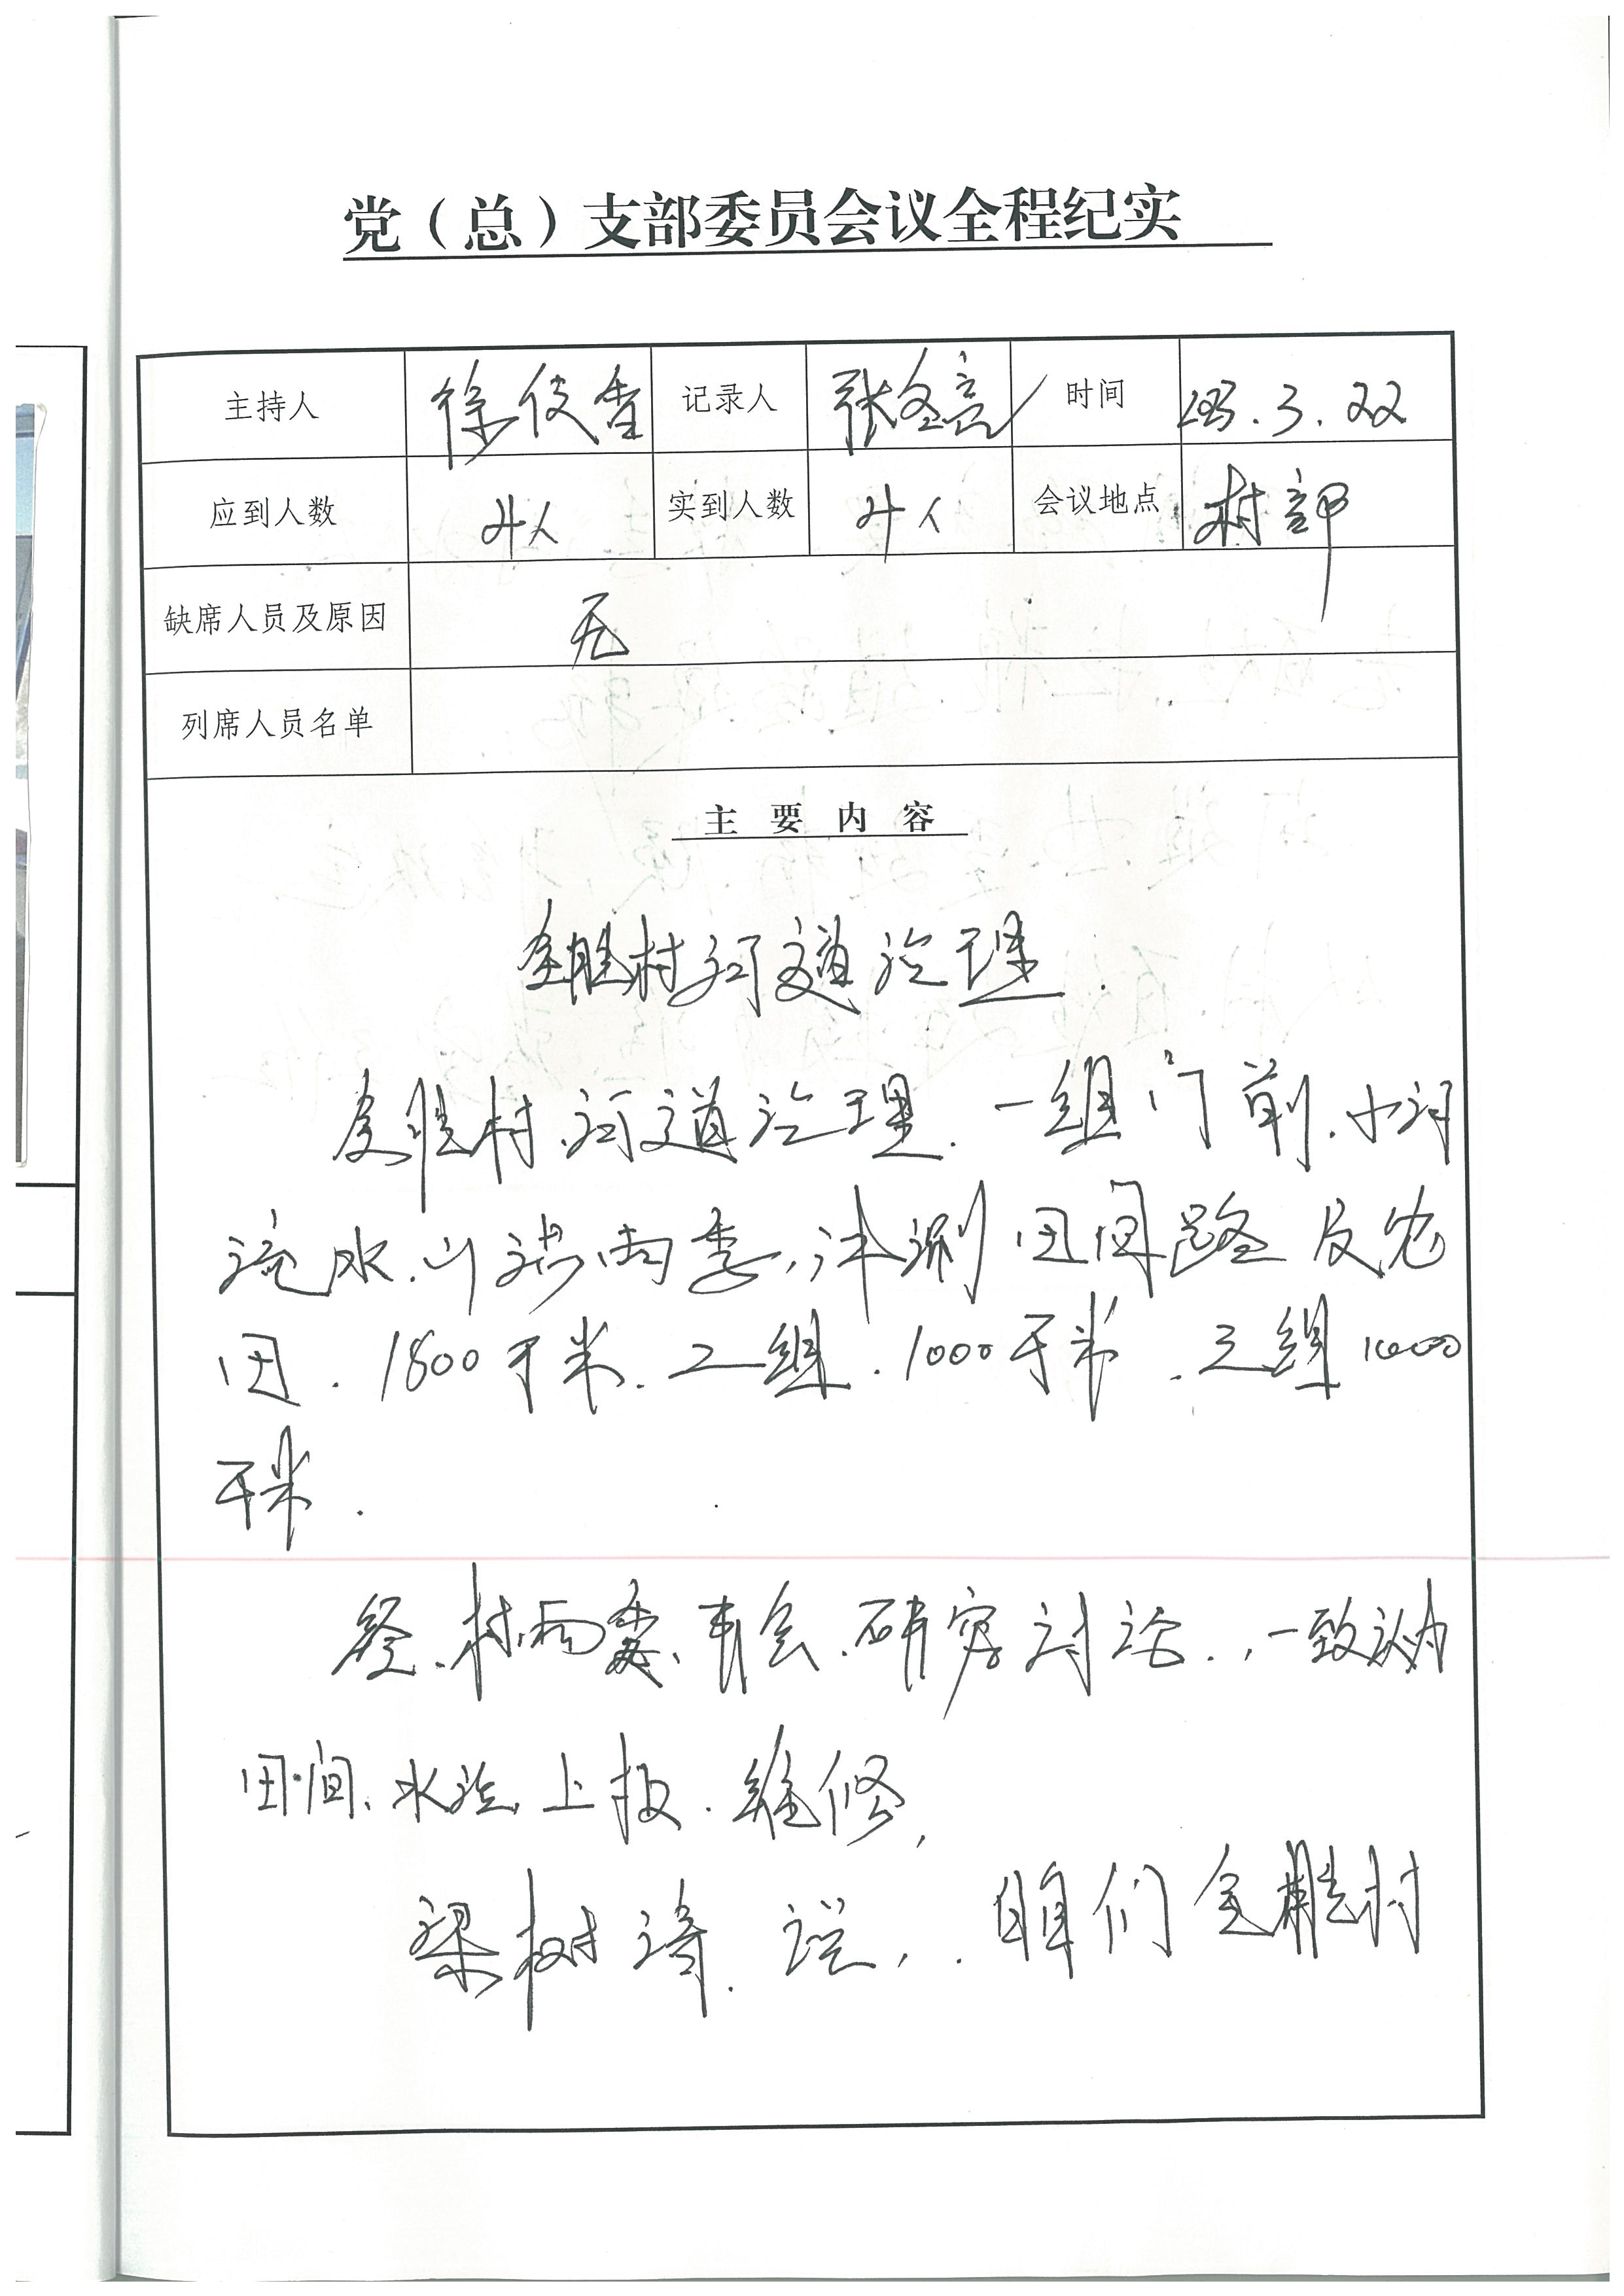 党（总）支部委员会议全程纪实
主持人 徐俊香 记录人 张金亮 时间 23.3.22
应到人数 4人 实到人数 4人 会议地点 村部
缺席人员及原因 无
列席人员名单
主要内容
金胜村河道治理.
金胜村.河道治理.一组门前.小河
流水.山洪两季,冲涮田间路及农
田.1800千米.二组.1000千米.三组10000
千米.
经.村两委.开会.研究讨论.,一致认为
田间.水治.上报.维修,
梁树.说,.咱们金胜村